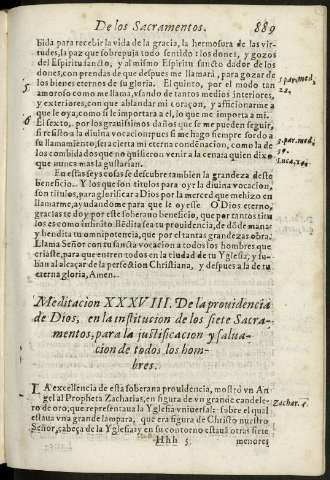 De los Sacramentos. 889
bida para recebir la vida de la gracia, la hermosura de las vir-
tudes, la paz que sobrepuja todo sentido: los dones, y gozos
del Espiritu sancto, y al mismo Espiritu sancto dador de los
dones, con prendas de que despues me llamarà, para gozar de
los bienes eternos de su gloria. El quinto, por el modo tan
amoroso como me llama, vsando de tantos medios interiores,
y exteriores, con que ablandar mi coraçon, y afficionarme a
que le oya, como si le importara a el, lo que me importa a mi.
El sexto, por los grauissimos daños que se me pueden seguir,
si resisto a la diuina vocacion: pues si me hago siempre sordo a
su llamamiento, sera cierta mi eterna condenacion, como la de
los combidados que no quisieron venir a la cena: a quien dixo
que nunca mas la gustarian.
En estas seys cosas se descubre tambien la grandeza deste
beneficio. Y los que son titulos para oyr la diuina vocacion,
son titulos, para glorificar a Dios por la merced que me hizo en
llamarme, ayudandome para que le oyesse. O Dios eterno,
gracias te doy por este soberano beneficio, que por tantos titu
los es como infinito. Bēdita sea tu prouidencia, de dōde mana:
y bendita tu omnipotencia, que por el tantas grandezas obra.
Llama Señor con tu sancta vocacion a todos los hombres que
criaste, para que entren todos en la ciudad de tu Yglesia, y su-
ban al alcaçar de la perfection Christiana, y despues a la de tu
eterna gloria, Amen.
5
6
1. par. med.
22.
3. par. med.
Luca, 14.
Meditacion XXXVIII. De la prouidencia
de Dios, en la institucion de los siete Sacra-
mentos, para la justificacion y salua-
cion de todos los hom-
bres.
LA excellencia de esta soberana prouidencia, mostrò vn An
gel al Propheta Zacharias, en figura de vn grande candele-
ro de oro, que representaua la Yglesia vniuersal: sobre el qual
estaua vna grande lampara, que era figura de Christo nuestro
Señor, cabeça de la Yglesia: y en su contorno estauā otras siete
Zachar. 4.
Hhh 5 menores